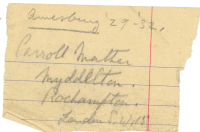 Amesbury 29-32.
Carroll Mather
Myddelton.
Rochampton.
London S.W.15